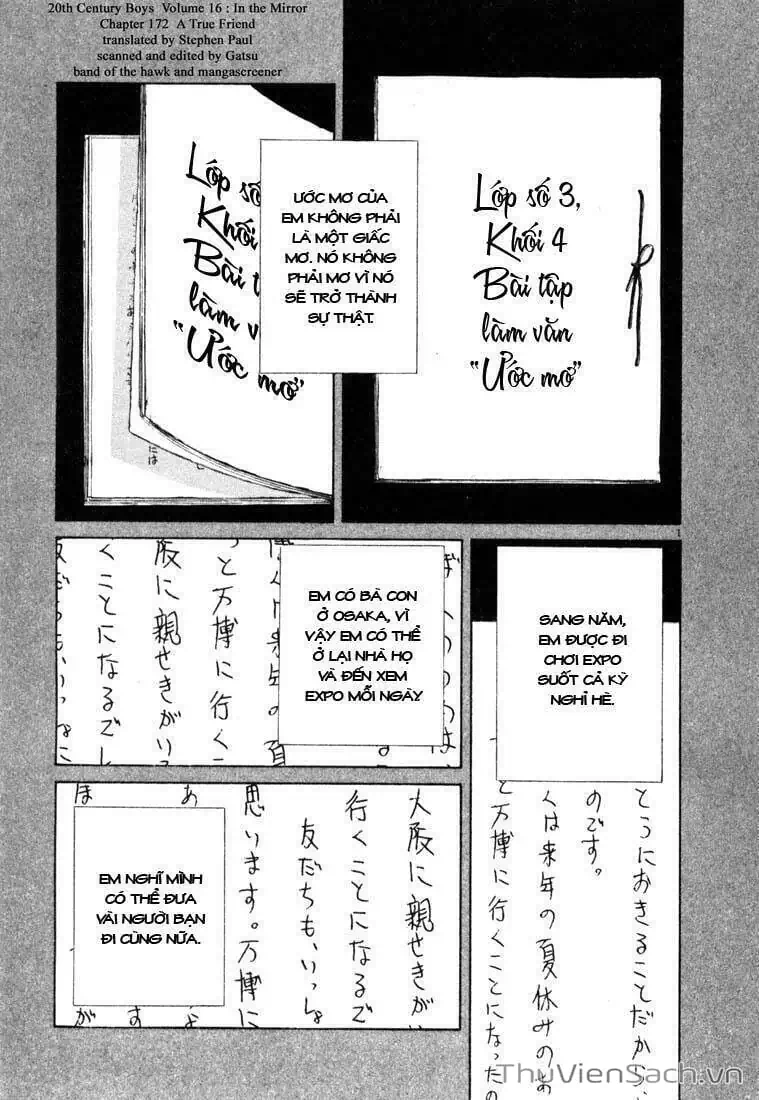 20th Century Boys Volume 16 : In the Mirror
Chapter 172 A True Friend
translated by Stephen Paul
scanned and edited by Gatsu
band of the hawk and mangascreener
Lớp số 3,
Khối 4
Bài tập
làm văn
"Ước mơ"
ƯỚC MƠ CỦA
EM KHÔNG PHẢI
LÀ MỘT GIẤC
MƠ. NÓ KHÔNG
PHẢI MƠ VÌ NÓ
SẼ TRỞ THÀNH
SỰ THẬT.
Lớp số
Khối
Bài tập
làm văn
"Ước mơ"
には
1
SANG NĂM,
EM ĐƯỢC ĐI
CHƠI EXPO
SUỐT CẢ KỲ
NGHỈ HÈ.
とうにおきることだから
のです。
くは来年の夏休みの
と万博に行くことになったの
EM CÓ BÀ CON
Ở OSAKA, VÌ
VẬY EM CÓ THỂ
Ở LẠI NHÀ HỌ
VÀ ĐẾN XEM
EXPO MỖI NGÀY.
来年の夏
っと万博に行く
阪に親せきがい
くことになるで
EM NGHĨ MÌNH
CÓ THỂ ĐƯA
VÀI NGƯỜI BẠN
ĐI CÙNG NỮA.
大阪に親せきがい
行くことになるで
友だちも、いっしょ
思います。万博に
ThuVienSach.vn